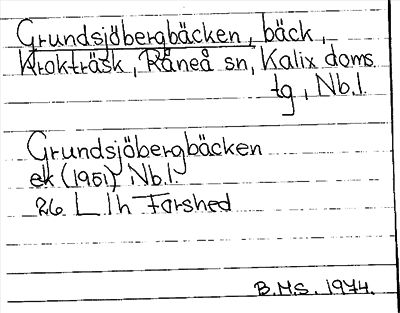 Grundsjöbergbäcken, bäck,
Krokträsk, Råneå sn, Kalix doms.
tg, Nb.l.
Grundsjöbergbäcken
ek (1951) Nb.l.
26 L l h Forshed
B.M.S. 1974.